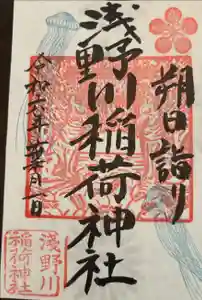 朔日詣り
浅野川稲荷神社
令和二年十一月一日
浅野川
稲荷神社